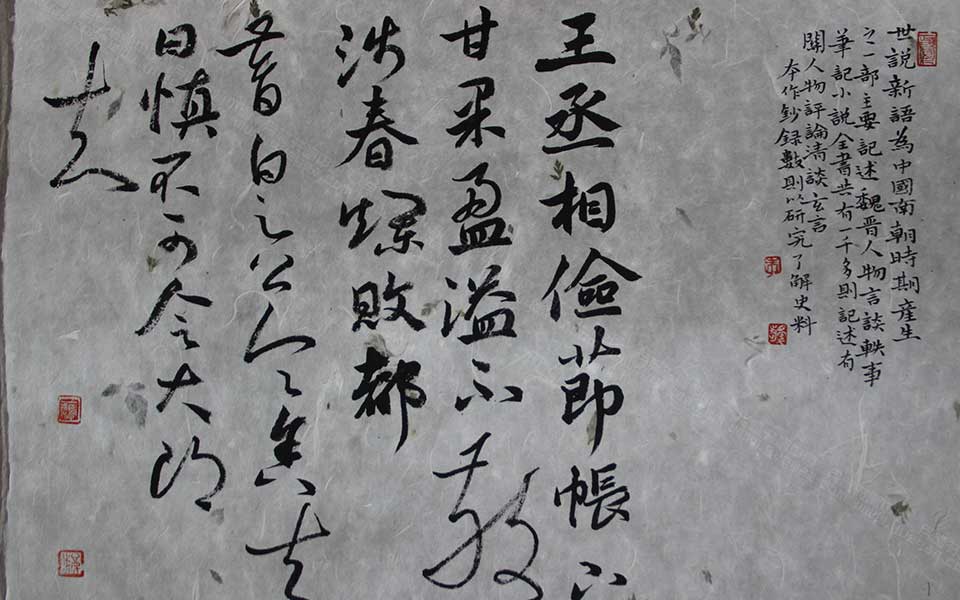 世說新語為中國南朝時期產生
之一部主要記述魏晉人物言談軼事
筆記小說全書共有一千多則記述有
關人物評論清談玄言
本作鈔錄數則以研究了解史料
王丞相儉節帳下
甘果盈溢不散
涉春爛敗都
督白之公令舍去
曰慎不可令大郎
知